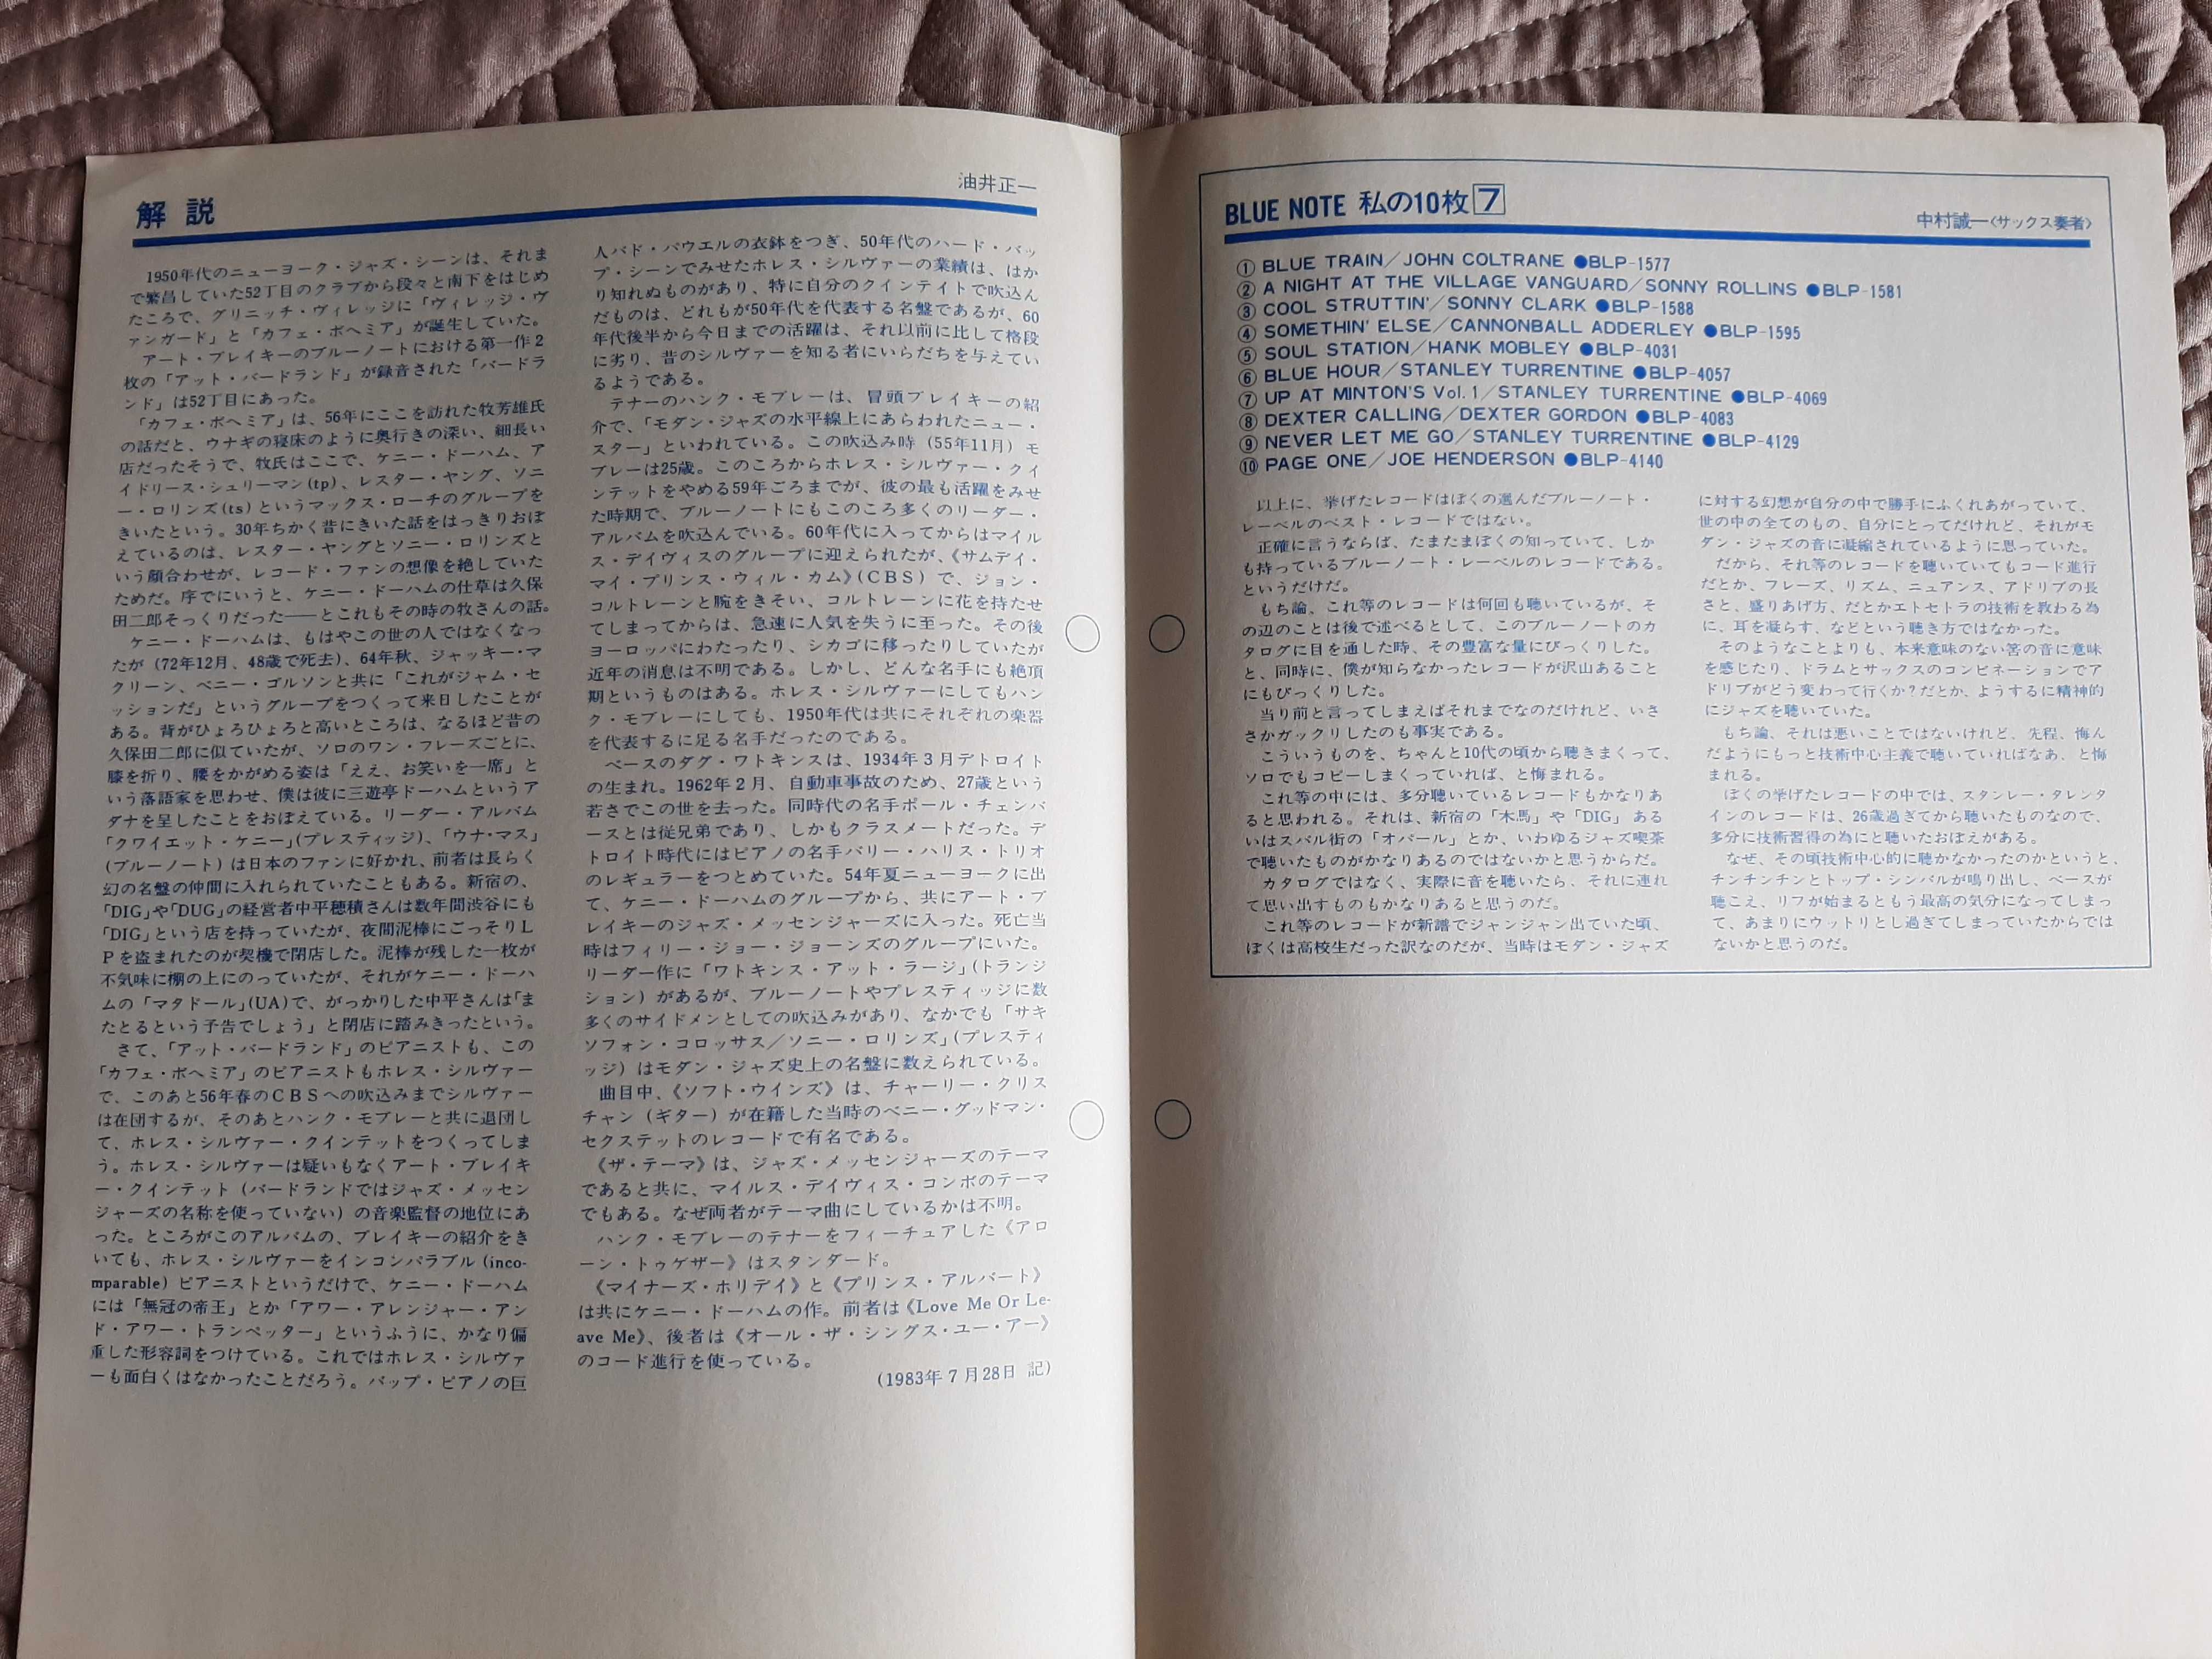 解 説
油井正一
1950年代のニューヨーク・ジャズ・シーンは、それま
で繁昌していた52丁目のクラブから段々と南下をはじめ
たころで、グリニッチ・ヴィレッジに「ヴィレッジ・ヴ
ァンガード」と「カフェ・ボヘミア」が誕生していた。
アート・ブレイキーのブルーノートにおける第一作2
枚の「アット・バードランド」が録音された「バードラ
ンド」は52丁目にあった。
「カフェ・ボヘミア」は、56年にここを訪れた牧芳雄氏
の話だと、ウナギの寝床のように奥行きの深い、細長い
店だったそうで、牧氏はここで、ケニー・ドーハム、ア
イドリース・シュリーマン(tp)、レスター・ヤング、ソニ
ー・ロリンズ(ts)というマックス・ローチのグループを
きいたという。30年ちかく昔にきいた話をはっきりおぼ
えているのは、レスター・ヤングとソニー・ロリンズと
いう顔合わせが、レコード・ファンの想像を絶していた
ためだ。序でにいうと、ケニー・ドーハムの仕草は久保
田二郎そっくりだった——とこれもその時の牧さんの話。
ケニー・ドーハムは、もはやこの世の人ではなくなっ
たが(72年12月、48歳で死去)、64年秋、ジャッキー・マ
クリーン、ベニー・ゴルソンと共に「これがジャム・セ
ッションだ」というグループをつくって来日したことが
ある。背がひょろひょろと高いところは、なるほど昔の
久保田二郎に似ていたが、ソロのワン・フレーズごとに、
膝を折り、腰をかがめる姿は「ええ、お笑いを一席」と
いう落語家を思わせ、僕は彼に三遊亭ドーハムというア
ダナを呈したことをおぼえている。リーダー・アルバム
「クワイエット・ケニー」(プレスティッジ)、「ウナ・マス」
(ブルーノート)は日本のファンに好かれ、前者は長らく
幻の名盤の仲間に入れられていたこともある。新宿の、
「DIG」や「DUG」の経営者中平穂積さんは数年間渋谷にも
「DIG」という店を持っていたが、夜間泥棒にごっそりL
Pを盗まれたのが契機で閉店した。泥棒が残した一枚が
不気味に棚の上にのっていたが、それがケニー・ドーハ
ムの「マタドール」(UA)で、がっかりした中平さんは「ま
たとるという予告でしょう」と閉店に踏みきったという。
さて、「アット・バードランド」のピアニストも、この
「カフェ・ボヘミア」のピアニストもホレス・シルヴァー
で、このあと56年春のCBSへの吹込みまでシルヴァー
は在団するが、そのあとハンク・モブレーと共に退団し
て、ホレス・シルヴァー・クインテットをつくってしま
う。ホレス・シルヴァーは疑いもなくアート・ブレイキ
ー・クインテット(バードランドではジャズ・メッセン
ジャーズの名称を使っていない)の音楽監督の地位にあ
った。ところがこのアルバムの、ブレイキーの紹介をき
いても、ホレス・シルヴァーをインコンパラブル(inco-
mparable)ピアニストというだけで、ケニー・ドーハム
には「無冠の帝王」とか「アワー・アレンジャー・アン
ド・アワー・トランペッター」というふうに、かなり偏
重した形容詞をつけている。これではホレス・シルヴァ
ーも面白くはなかったことだろう。バップ・ピアノの巨
人バド・パウエルの衣鉢をつぎ、50年代のハード・バッ
プ・シーンでみせたホレス・シルヴァーの業績は、はか
り知れぬものがあり、特に自分のクインテイトで吹込ん
だものは、どれもが50年代を代表する名盤であるが、60
年代後半から今日までの活躍は、それ以前に比して格段
に劣り、昔のシルヴァーを知る者にいらだちを与えてい
るようである。
テナーのハンク・モブレーは、冒頭ブレイキーの紹
介で、「モダン・ジャズの水平線上にあらわれたニュー・
スター」といわれている。この吹込み時(55年11月)モ
ブレーは25歳。このころからホレス・シルヴァー・クイ
ンテットをやめる59年ごろまでが、彼の最も活躍をみせ
た時期で、ブルーノートにもこのころ多くのリーダー・
アルバムを吹込んでいる。60年代に入ってからはマイル
ス・デイヴィスのグループに迎えられたが、《サムデイ・
マイ・プリンス・ウィル・カム》(CBS)で、ジョン・
コルトレーンと腕をきそい、コルトレーンに花を持たせ
てしまってからは、急速に人気を失うに至った。その後
ヨーロッパにわたったり、シカゴに移ったりしていたが
近年の消息は不明である。しかし、どんな名手にも絶頂
期というものはある。ホレス・シルヴァーにしてもハン
ク・モブレーにしても、1950年代は共にそれぞれの楽器
を代表するに足る名手だったのである。
ベースのダグ・ワトキンスは、1934年3月デトロイト
の生まれ。1962年2月、自動車事故のため、27歳という
若さでこの世を去った。同時代の名手ポール・チェンバ
ースとは従兄弟であり、しかもクラスメートだった。デ
トロイト時代にはピアノの名手バリー・ハリス・トリオ
のレギュラーをつとめていた。54年夏ニューヨークに出
て、ケニー・ドーハムのグループから、共にアート・ブ
レイキーのジャズ・メッセンジャーズに入った。死亡当
時はフィリー・ジョー・ジョーンズのグループにいた。
リーダー作に「ワトキンス・アット・ラージ」(トランジ
ション)があるが、ブルーノートやプレスティッジに数
多くのサイドメンとしての吹込みがあり、なかでも「サキ
ソフォン・コロッサス/ソニー・ロリンズ」(プレスティ
ッジ)はモダン・ジャズ史上の名盤に数えられている。
曲目中、《ソフト・ウインズ》は、チャーリー・クリス
チャン(ギター)が在籍した当時のベニー・グッドマン・
セクステットのレコードで有名である。
《ザ・テーマ》は、ジャズ・メッセンジャーズのテーマ
であると共に、マイルス・デイヴィス・コンボのテーマ
でもある。なぜ両者がテーマ曲にしているかは不明。
ハンク・モブレーのテナーをフィーチュアした《アロ
ーン・トゥゲザー》はスタンダード。
《マイナーズ・ホリデイ》と《プリンス・アルバート》
は共にケニー・ドーハムの作。前者は《Love Me Or Le-
ave Me》、後者は《オール・ザ・シングス・ユー・アー》
のコード進行を使っている。
(1983年7月28日 記)
BLUE NOTE 私の10枚 7
中村誠一〈サックス奏者〉
① BLUE TRAIN/JOHN COLTRANE ●BLP-1577
② A NIGHT AT THE VILLAGE VANGUARD/SONNY ROLLINS ●BLP-1581
③ COOL STRUTTIN'/SONNY CLARK ●BLP-1588
④ SOMETHIN' ELSE/CANNONBALL ADDERLEY ●BLP-1595
⑤ SOUL STATION/HANK MOBLEY ●BLP-4031
⑥ BLUE HOUR/STANLEY TURRENTINE ●BLP-4057
⑦ UP AT MINTON'S Vol.1/STANLEY TURRENTINE ●BLP-4069
⑧ DEXTER CALLING/DEXTER GORDON ●BLP-4083
⑨ NEVER LET ME GO/STANLEY TURRENTINE ●BLP-4129
⑩ PAGE ONE/JOE HENDERSON ●BLP-4140
以上に、挙げたレコードはぼくの選んだブルーノート・
レーベルのベスト・レコードではない。
正確に言うならば、たまたまぼくの知っていて、しか
も持っているブルーノート・レーベルのレコードである。
というだけだ。
もち論、これ等のレコードは何回も聴いているが、そ
の辺のことは後で述べるとして、このブルーノートのカ
タログに目を通した時、その豊富な量にびっくりした。
と、同時に、僕が知らなかったレコードが沢山あること
にもびっくりした。
当り前と言ってしまえばそれまでなのだけれど、いさ
さかガックリしたのも事実である。
こういうものを、ちゃんと10代の頃から聴きまくって、
ソロでもコピーしまくっていれば、と悔まれる。
これ等の中には、多分聴いているレコードもかなりあ
ると思われる。それは、新宿の「木馬」や「DIG」ある
いはスバル街の「オパール」とか、いわゆるジャズ喫茶
で聴いたものがかなりあるのではないかと思うからだ。
カタログではなく、実際に音を聴いたら、それに連れ
て思い出すものもかなりあると思うのだ。
これ等のレコードが新譜でジャンジャン出ていた頃、
ぼくは高校生だった訳なのだが、当時はモダン・ジャズ
に対する幻想が自分の中で勝手にふくれあがっていて、
世の中の全てのもの、自分にとってだけれど、それがモ
ダン・ジャズの音に凝縮されているように思っていた。
だから、それ等のレコードを聴いていてもコード進行
だとか、フレーズ、リズム、ニュアンス、アドリブの長
さと、盛りあげ方、だとかエトセトラの技術を教わる為
に、耳を凝らす、などという聴き方ではなかった。
そのようなことよりも、本来意味のない筈の音に意味
を感じたり、ドラムとサックスのコンビネーションでア
ドリブがどう変わって行くか?だとか、ようするに精神的
にジャズを聴いていた。
もち論、それは悪いことではないけれど、先程、悔ん
だようにもっと技術中心主義で聴いていればなあ、と悔
まれる。
ぼくの挙げたレコードの中では、スタンレー・タレンタ
インのレコードは、26歳過ぎてから聴いたものなので、
多分に技術習得の為にと聴いたおぼえがある。
なぜ、その頃技術中心的に聴かなかったのかというと、
チンチンチンとトップ・シンバルが鳴り出し、ベースが
聴こえ、リフが始まるともう最高の気分になってしまっ
て、あまりにウットリとし過ぎてしまっていたからでは
ないかと思うのだ。